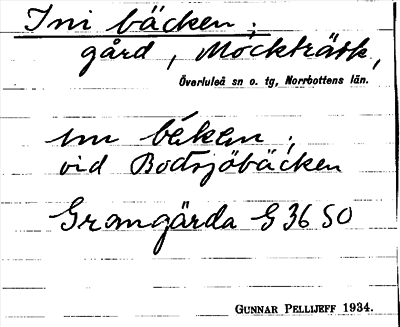 Ini bäcken;
gård, Mockträsk,
Överluleå sn o. tg, Norrbottens län.
vid Bodsjöbäcken
Gramgärda G 36 SO
GUNNAR PELLIJEFF 1934.